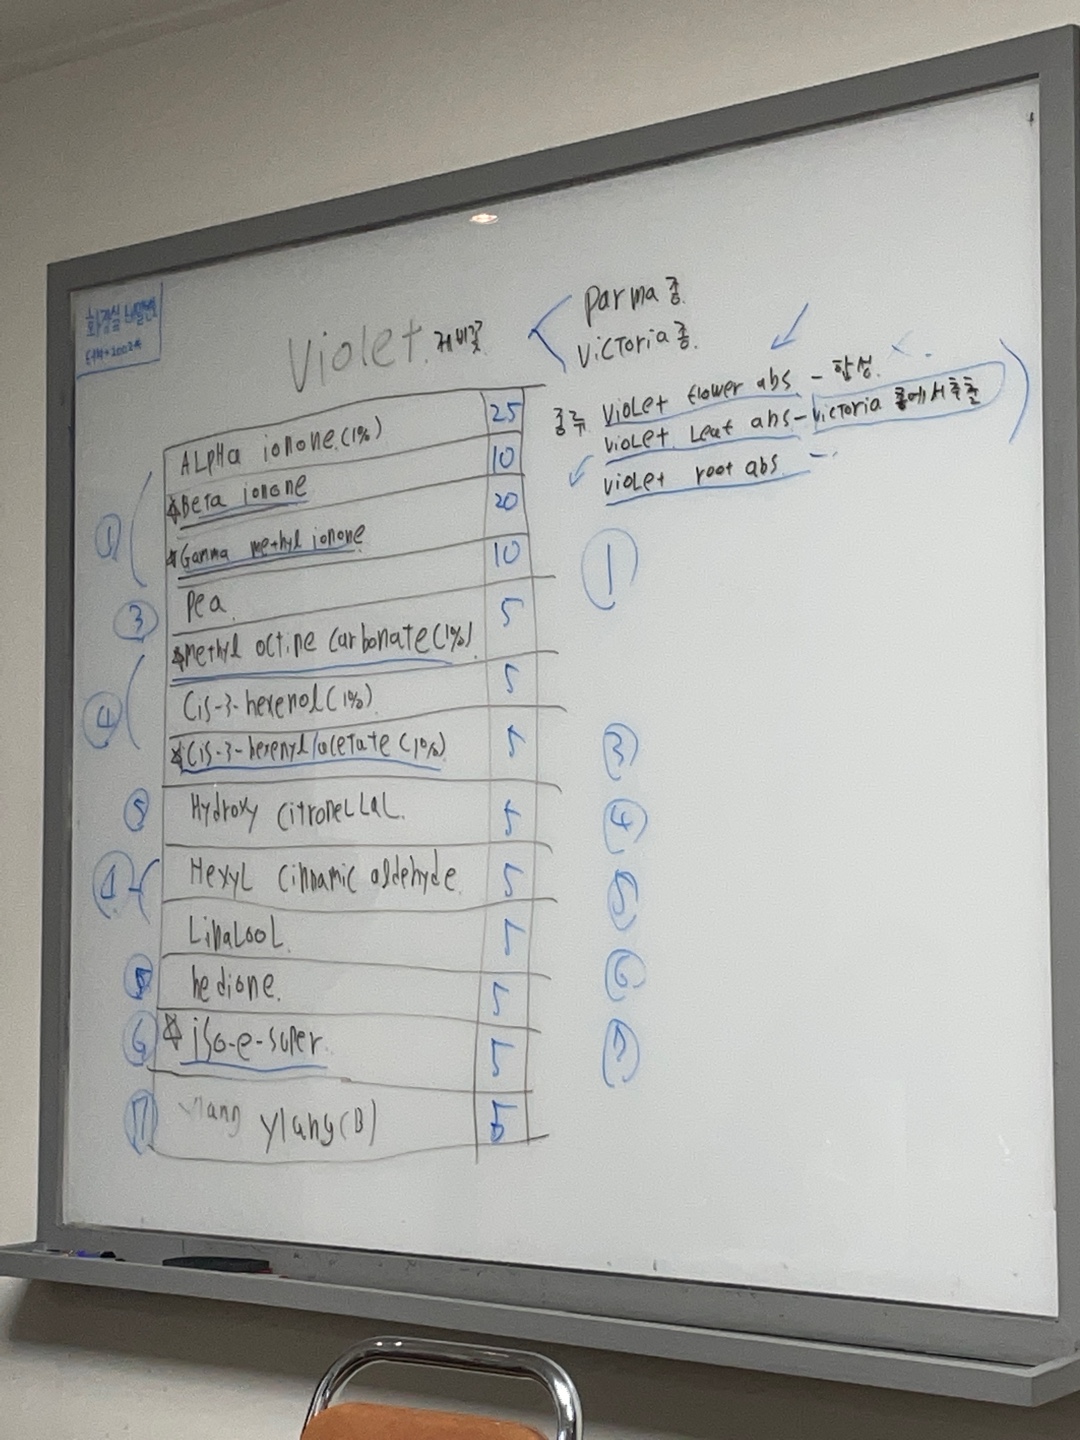 화장실 비밀번
Violet 제비꽃
Parma종
Victoria종
종류 Violet flower abs - 합성
Violet Leaf abs - Victoria 종에서 추출
Violet root abs -
ALpHa ionone (1%) 25
☆Beta ionone 10
☆Gamma methyl ionone 20
pea 10
☆Methyl octine carbonate (1%) 5
Cis-3-hexenol (1%) 5
☆Cis-3-hexenyl acetate (1%) 5
Hydroxy CitroneLLaL 5
HexyL Cinnamic aldehyde 5
LinaLooL 5
hedione 5
☆iso-e-super 5
ylang ylang (B) 5
①
③
④
⑤
①
⑥
⑦
①
③
④
⑤
⑥
⑦